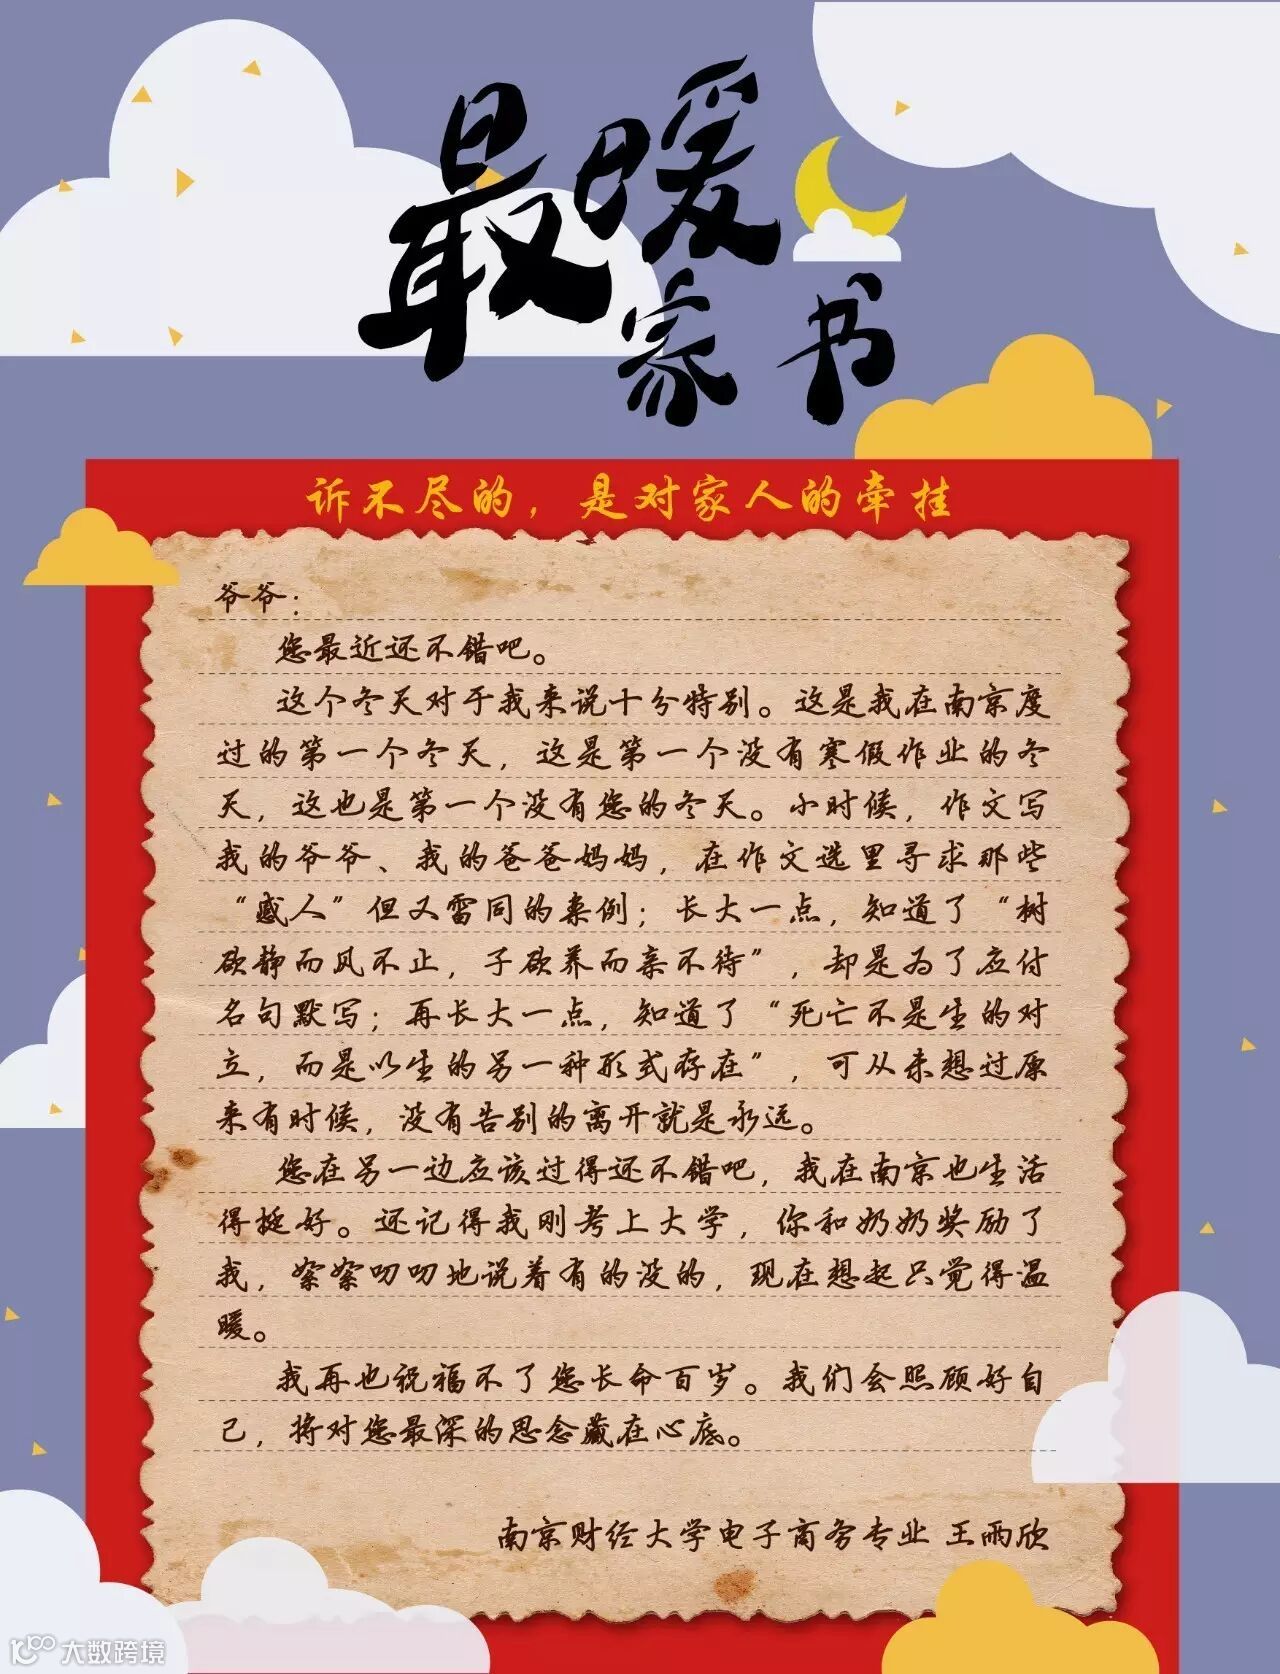 最暖
家书
诉不尽的，是对家人的牵挂
爷爷：
您最近还不错吧。
这个冬天对于我来说十分特别。这是我在南京度
过的第一个冬天，这是第一个没有寒假作业的冬
天，这也是第一个没有您的冬天。小时候，作文写
我的爷爷、我的爸爸妈妈，在作文选里寻求那些
“感人”但又雷同的案例；长大一点，知道了“树
欲静而风不止，子欲养而亲不待”，却是为了应付
名句默写；再长大一点，知道了“死亡不是生的对
立，而是以生的另一种形式存在”，可从未想过原
来有时候，没有告别的离开就是永远。
您在另一边应该过得还不错吧，我在南京也生活
得挺好。还记得我刚考上大学，你和奶奶奖励了
我，絮絮叨叨地说着有的没的，现在想起只觉得温
暖。
我再也祝福不了您长命百岁。我们会照顾好自
己，将对您最深的思念藏在心底。
南京财经大学电子商务专业 王雨欣
大数跨境